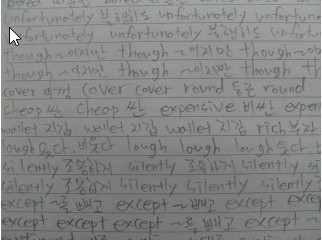 unfortunately 불행히도 unfortunately unfortun
unfortunately unfortunately 불행히도 unfortu
though ~이지만 though ~이지만 though
though ~이지만 though ~이지만 though th
cover 덮개 cover cover round 둥근 round
cheap 싼 cheap 싼 expensive 비싼 expen
wallet 지갑 wallet 지갑 wallet 지갑 rich 부자
laugh 웃다, 비웃다 laugh laugh laugh 웃다
silently 조용하게 silently 조용하게 silently si
silently 조용하게 silently silently silently
except ~를 빼고 except ~빼고 except exce
except except except ~를 빼고 except ~